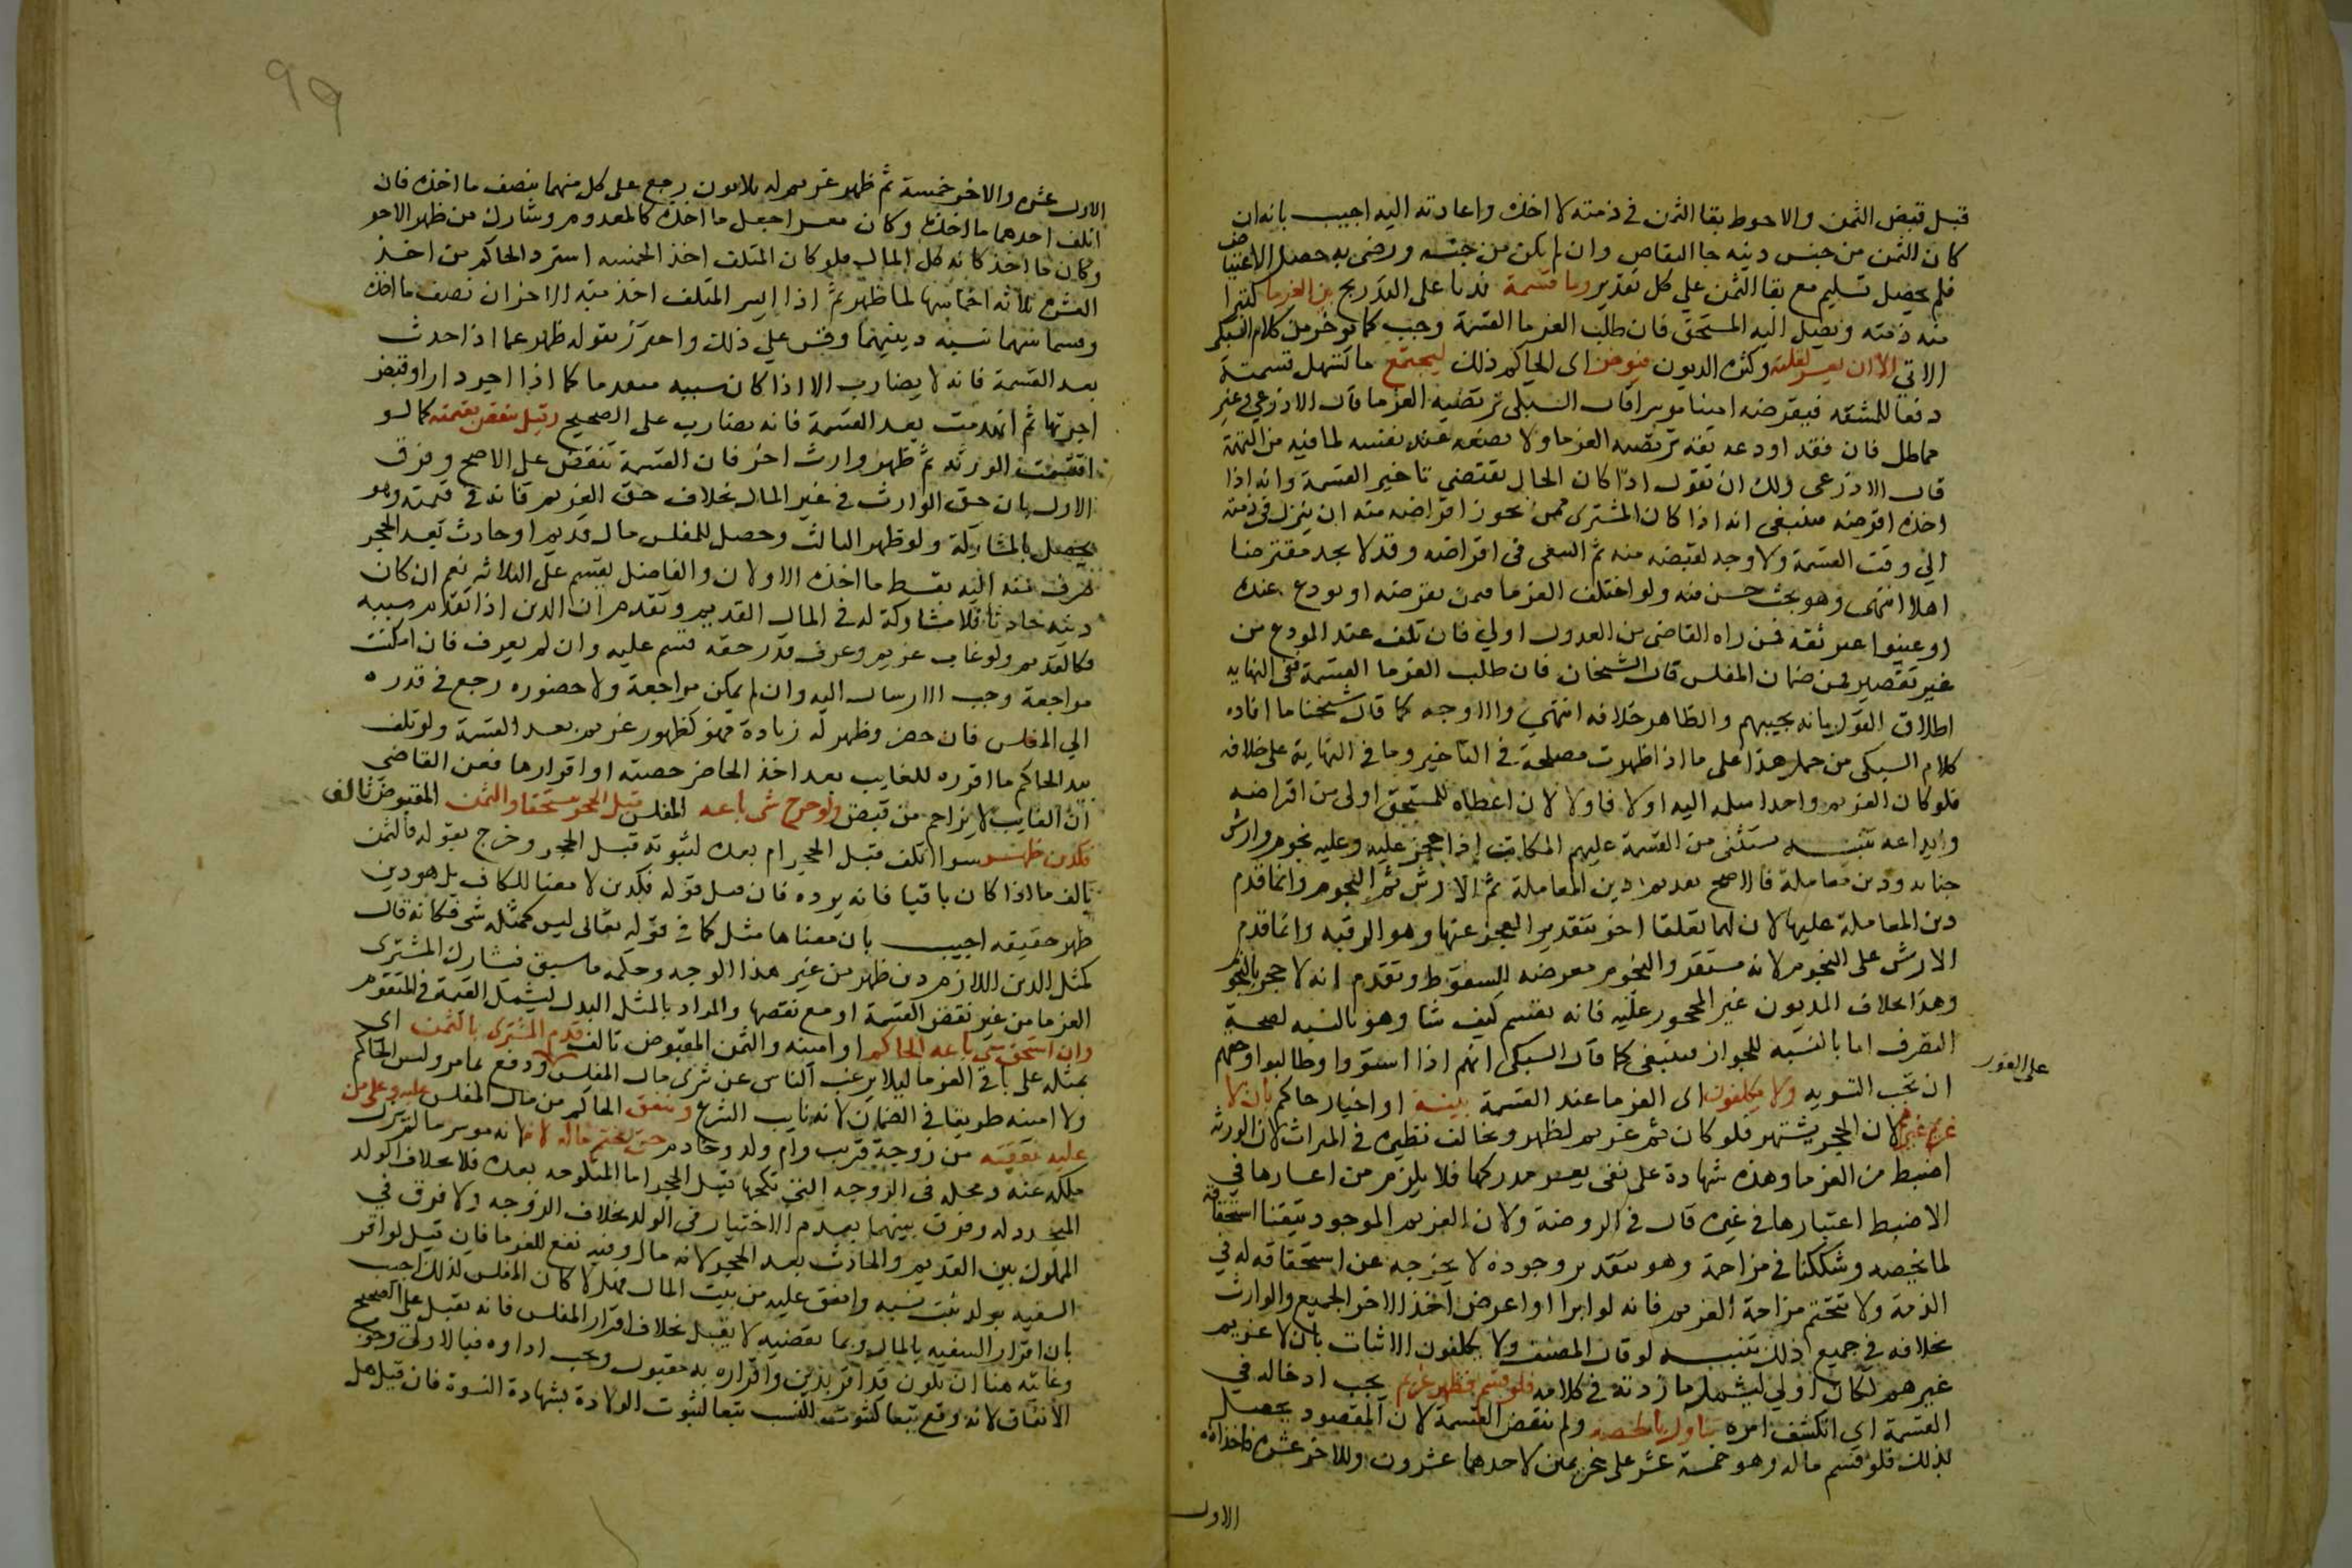 قبل قبض الثمن والاحوط بقا الثمن في ذمته لا اخذه واعادته اليه اجيب بانه ان
كان الثمن من جنس دينه جا التقاص وان لم يكن من جنسه ورضي به حصل الاعتياض
فلم يحصل تسليم مع بقا الثمن علي كل تقدير وما قسمه ندبا على التدريج بين الغرما لتبرا
منه ذمته ويصل اليه المستحق فان طلب الغرما القسمة وجب كما يوخذ من كلام السبكي
الاتي الا ان يعسر لقلته وكثرة الديون فيوخر اى الحاكم ذلك ليجتمع ما تسهل قسمته
دفعا للمشقه فيقرضه امينا موسرا قال السبكي ترتضيه الغرما قال الاذرعي غير
مماطل فان فقد اودعه ثقة ترتضيه الغرما ولا يضعه عند نفسه لما فيه من التهمة
قال الاذرعى ولك ان تقول اذا كان الحال يقتضي تاخير القسمة وانه اذا
اخذه اقرضه فينبغى انه اذا كان المشترى ممن يجوز اقراضه منه ان يترك في ذمته
الي وقت القسمة ولا وجه لقبضه منه ثم السعى فى اقراضه وقد لا يجد مقترضا
اهلا انتهى وهو بحث حسن ولو اختلف الغرما فيمن يقرضه او يودع عنده
او عينوا غير ثقه فمن راه القاضى من العدول اولي فان تلف عند المودع من
غير تقصير فمن ضمان المفلس قال الشيخان فان طلب الغرما القسمة ففى النهايه
اطلاق القول بانه يجيبهم والظاهر خلافه انتهي والاوجه كما قال شيخنا ما افاده
كلام السبكى من حمل هذا على ما اذا ظهرت مصلحة فى التاخير وما في النهاية على خلافه
فلو كان الغريم واحدا سلمه اليه اولا فاولا لان اعطاه للمستحق اولى من اقراضه
وايداعه تنبيه يستثنى من القسمة عليهم المكاتب اذا حجز عليه وعليه نجوم وارش
جنايه ودين معاملة فالاصح تقديم دين المعاملة ثم الارش ثم النجوم وانما قدم
دين المعاملة عليهما لان لهما تعلقا اخر بتقدير العجز عنها وهو الرقبه وانما قدم
الارش على النجوم لانه مستقر والنجوم معرضه للسقوط وتقدم انه لا حجر بالنجوم
وهذا بخلاف المديون غير المحجور عليه فانه يقسم كيف شا وهو بالنسبه لصحة
التصرف اما بالنسبه للجواز فينبغى كما قال السبكى انهم اذا استووا وطالبوا وحقهم
على الفور
ان تجب التسويه ولا يكلفون اى الغرما عند القسمة بينة او اخبار حاكم بان لا
غريم غيرهم لان الحجر يشتهر فلو كان ثم غريم لظهر ويخالف نظيره في الميراث لان الورثه
اضبط من الغرما وهذه شهادة على نفى يعسر مدركها فلا يلزم من اعتبارها في
الاضبط اعتبارها في غيره قال في الروضة ولان الغريم الموجود تيقنا استحقاقه
لما يخصه وشككنا في مزاحمة وهو بتقدير وجوده لا يخرجه عن استحقاقه له في
الذمة ولا تتحتم مزاحمة الغريم فانه لو ابرا او اعرض اخذ الاخر الجميع والوارث
بخلافه في جميع ذلك تنبيه لو قال المصنف ولا يكلفون الاثبات بان لا غريم
غيرهم لكان اولي ليشمل ما زدته في كلامه فلو قسم فظهر غريم يجب ادخاله في
القسمة اي انكشف امره شارك بالحصه ولم تنقض القسمة لان المقصود يحصل
بذلك فلو قسم ماله وهو خمسة عشر على غريمين لاحدهما عشرون وللاخر عشرة فاخذ
الاول
99
الاول عشرة والاخر خمسة ثم ظهر غريم له ثلاثون رجع على كل منهما بنصف ما اخذه فان
اتلف احدهما ما اخذه وكان معسرا جعل ما اخذه كالمعدوم وشارك من ظهر الاخر
وكان ما اخذ كانه كل المال فلو كان المتلف اخذ الخمسه استرد الحاكم من اخذ
العشرة ثلاثه اخماسها لما ظهر ثم اذا ايسر المتلف اخذ منه الاخران نصف ما اخذه
وقسماه بينهما نسبة دينهما وقس علي ذلك واحترز بقوله ظهر عما اذا حدث
بعد القسمة فانه لا يضارب الا اذا كان سببه متقدما كما اذا اجر دارا وقبض
اجرتها ثم انهدمت بعد القسمة فانه يضارب على الصحيح وقيل تنقض القسمة كما لو
اقتسمت الورثه ثم ظهر وارث اخر فان القسمة تنقض على الاصح وفرق
الاول بان حق الوارث في عين المال بخلاف حق الغريم فانه في قيمته وهو
يحصل بالمشاركة ولو ظهر الثالث وحصل للمفلس مال قديم او حادث بعد الحجر
صرف منه اليه بقسط ما اخذه الاولان والفاضل يقسم على الثلاثه نعم ان كان
دينه حادثا فلا مشاركة له في المال القديم وتقدم ان الدين اذا تقدم سببه
فكالقديم ولو غاب غريم وعرف قدر حقه قسم عليه وان لم يعرف فان امكنت
مراجعة وجب الارسال اليه وان لم يمكن مراجعة ولا حضوره رجع في قدره
الي المفلس فان حضر وظهر له زيادة فهو كظهور غريم بعد القسمة ولو تلف
بيد الحاكم ما افرده للغايب بعد اخذ الحاضر حصته او افرازها فعن القاضي
ان الغايب لا يزاحم من قبض ولو خرج شي باعه المفلس قبل الحجر مستحقا والثمن المقبوض تالف
فكدين ظهر سوا اتلف قبل الحجر ام بعده لثبوته قبل الحجر وخرج بقوله والثمن
تالف ما اذا كان باقيا فانه يرده فان قيل قوله فكدين لا معنا للكاف بل هو دين
ظهر حقيقه اجيب بان معناها مثل كما في قوله تعالى ليس كمثله شي فكانه قال
كمثل الدين اللازم دين ظهر من غير هذا الوجه وحكمه ما سبق فيشارك المشترى
الغرما من غير نقض القسمة او مع نقضها والمراد بالمثل البدل ليشمل القيمة في المتقوم
وان استحق شي باعه الحاكم او امينه والثمن المقبوض تالف قدم المشترى بالثمن اي
بمثله على باقي الغرما ليلا يرغب الناس عن شرى مال المفلس ودفع بما مر وليس الحاكم
ولا امينه طريقا في الضمان لانه نايب الشرع وينفق الحاكم من مال المفلس عليه وعلى من
عليه نفقته من زوجة قريب وام ولد وخادم حتى يقسم ماله لانه موسر ما لم يزل
ملكه عنه ومحله فى الزوجه التي نكحها قبل الحجر اما المنكوحه بعده فلا بخلاف الولد
المتجدد له وفرق بينهما بعدم الاختيار في الولد بخلاف الزوجه ولا فرق في
المملوك بين القديم والحادث بعد الحجر لانه مال وفيه نفع للغرما فان قيل لو اقر
السفيه بولد ثبت نسبه وانفق عليه من بيت المال فهلا كان المفلس كذلك اجيب
بان اقرار السفيه بالمال وبما يقتضيه لا يقبل بخلاف اقرار المفلس فانه يقبل على الصحيح
وغايته هنا ان يكون قد اقر بدين واقراره به مقبول ويجب اداوه فبالاولى وجوب
الانفاق لانه وقع تبعا كثبوت النسب تبعا لثبوت الولادة بشهادة النسوة فان قيل هل